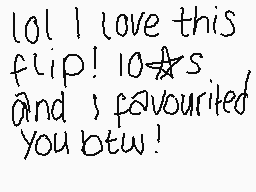 lol I love this
flip! 10☆s
and i favourited
you btw!